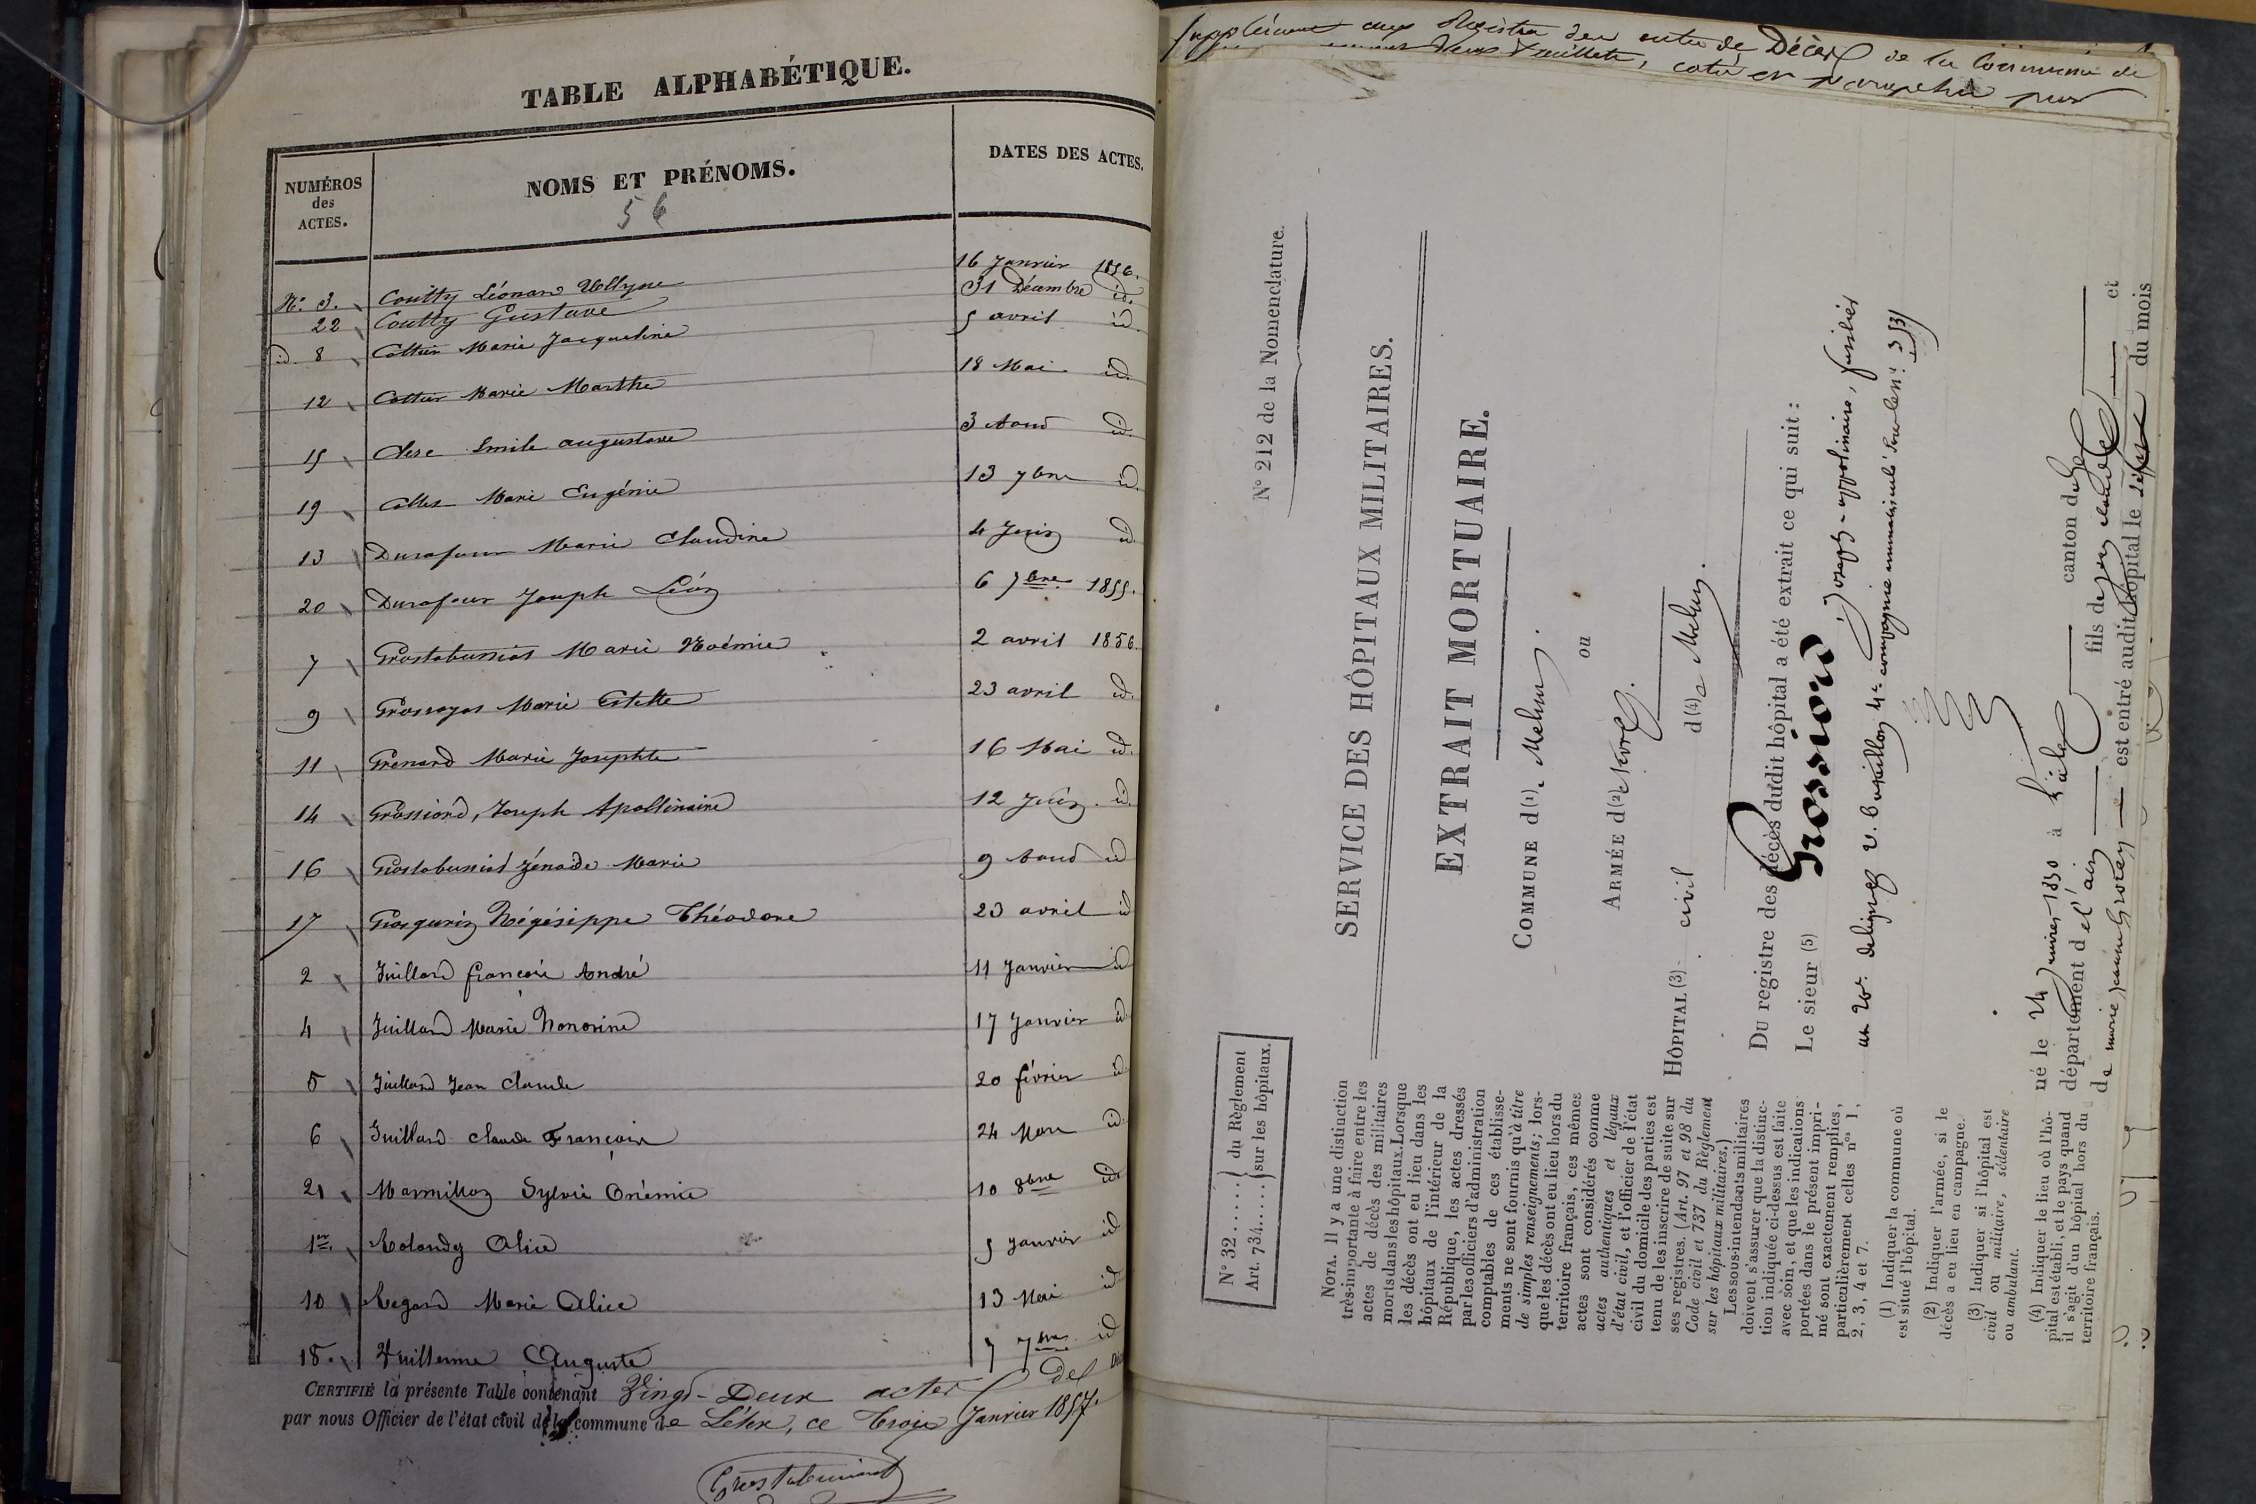 TABLE ALPHABÉTIQUE.
NUMÉROS des ACTES.
NOMS ET PRÉNOMS.
DATES DES ACTES.
56
N° 3. Coutty Léonard 16 Janvier 1856.
22 Coutty Gustave 31 Décembre id.
id. 8 Cottier Marie Jacqueline 5 avril id.
12 Cottier Marie Marthe 18 Mai id.
15 Emile augustave 3 Aout id.
19 Marie Eugénie 13 7bre id.
13 Durafour Marie Claudine 4 Juin id.
20 Durafour Joseph Léon 6 7bre 1855.
7 Grostabussiat Marie Noémie 2 avril 1856.
9 Marie Estelle 23 avril id.
11 Grenard Marie Josephte 16 Mai id.
14 Grossiord, Joseph Apollinaire 12 Juin id.
16 Grostabussiat Zénaïde Marie 9 Aout id
17 Grosgurin Hégésippe Théodore 23 avril id
2 Juillard françois André 11 Janvier id
4 Juillard Marie Honorine 17 Janvier id
5 Juillard Jean Claude 20 février id
6 Juillard Claude François 24 Mars id.
21 Marmillon Sylvie 10 8bre id.
1er. Rolandez Alice 5 Janvier id
10 Regard Marie Alice 13 Mai id
18. Vuillerme Auguste 7 7bre id
CERTIFIÉ la présente Table contenant Vingt-Deux actes de
par nous Officier de l'état civil de la commune de Lélex, ce trois Janvier 1857.
Grostabussiat
Supplément aux Registre des actes de Décès de la Commune de
deux feuillets, coté et paraphé par
N° 212 de la Nomenclature.
N° 32...... du Règlement
Art. 734..... sur les hôpitaux.
SERVICE DES HÔPITAUX MILITAIRES.
EXTRAIT MORTUAIRE.
COMMUNE d(1)e Melun.
ou
ARMÉE d(2)e
HÔPITAL (3) civil d(4)e Melun.
Du registre des décès dudit hôpital a été extrait ce qui suit :
Le sieur (5) Grossiord Joseph-appolinaire, fusilier
au 20e. de ligne, 2e. Bataillon, 4e. compagnie
né le 24 Janvier 1830 à Lélex canton de Gex
département de l'ain fils de
de marie est entré audit hôpital le du mois
et
NOTA. Il y a une distinction
très-importante à faire entre les
actes de décès des militaires
morts dans les hôpitaux. Lorsque
les décès ont eu lieu dans les
hôpitaux de l'intérieur de la
République, les actes dressés
par les officiers d'administration
comptables de ces établisse-
ments ne sont fournis qu'à titre
de simples renseignements; lors-
que les décès ont eu lieu hors du
territoire français, ces mêmes
actes sont considérés comme
actes authentiques et légaux
d'état civil, et l'officier de l'état
civil du domicile des parties est
tenu de les inscrire de suite sur
ses registres. (Art. 97 et 98 du
Code civil et 737 du Règlement
sur les hôpitaux militaires.)
Les sous-intendants militaires
doivent s'assurer que la distinc-
tion indiquée ci-dessus est faite
avec soin, et que les indications
portées dans le présent impri-
mé sont exactement remplies,
particulièrement celles nos 1,
2, 3, 4 et 7.
(1) Indiquer la commune où
est situé l'hôpital.
(2) Indiquer l'armée, si le
décès a eu lieu en campagne.
(3) Indiquer si l'hôpital est
civil ou militaire, sédentaire
ou ambulant.
(4) Indiquer le lieu où l'hô-
pital est établi, et le pays quand
il s'agit d'un hôpital hors du
territoire français.